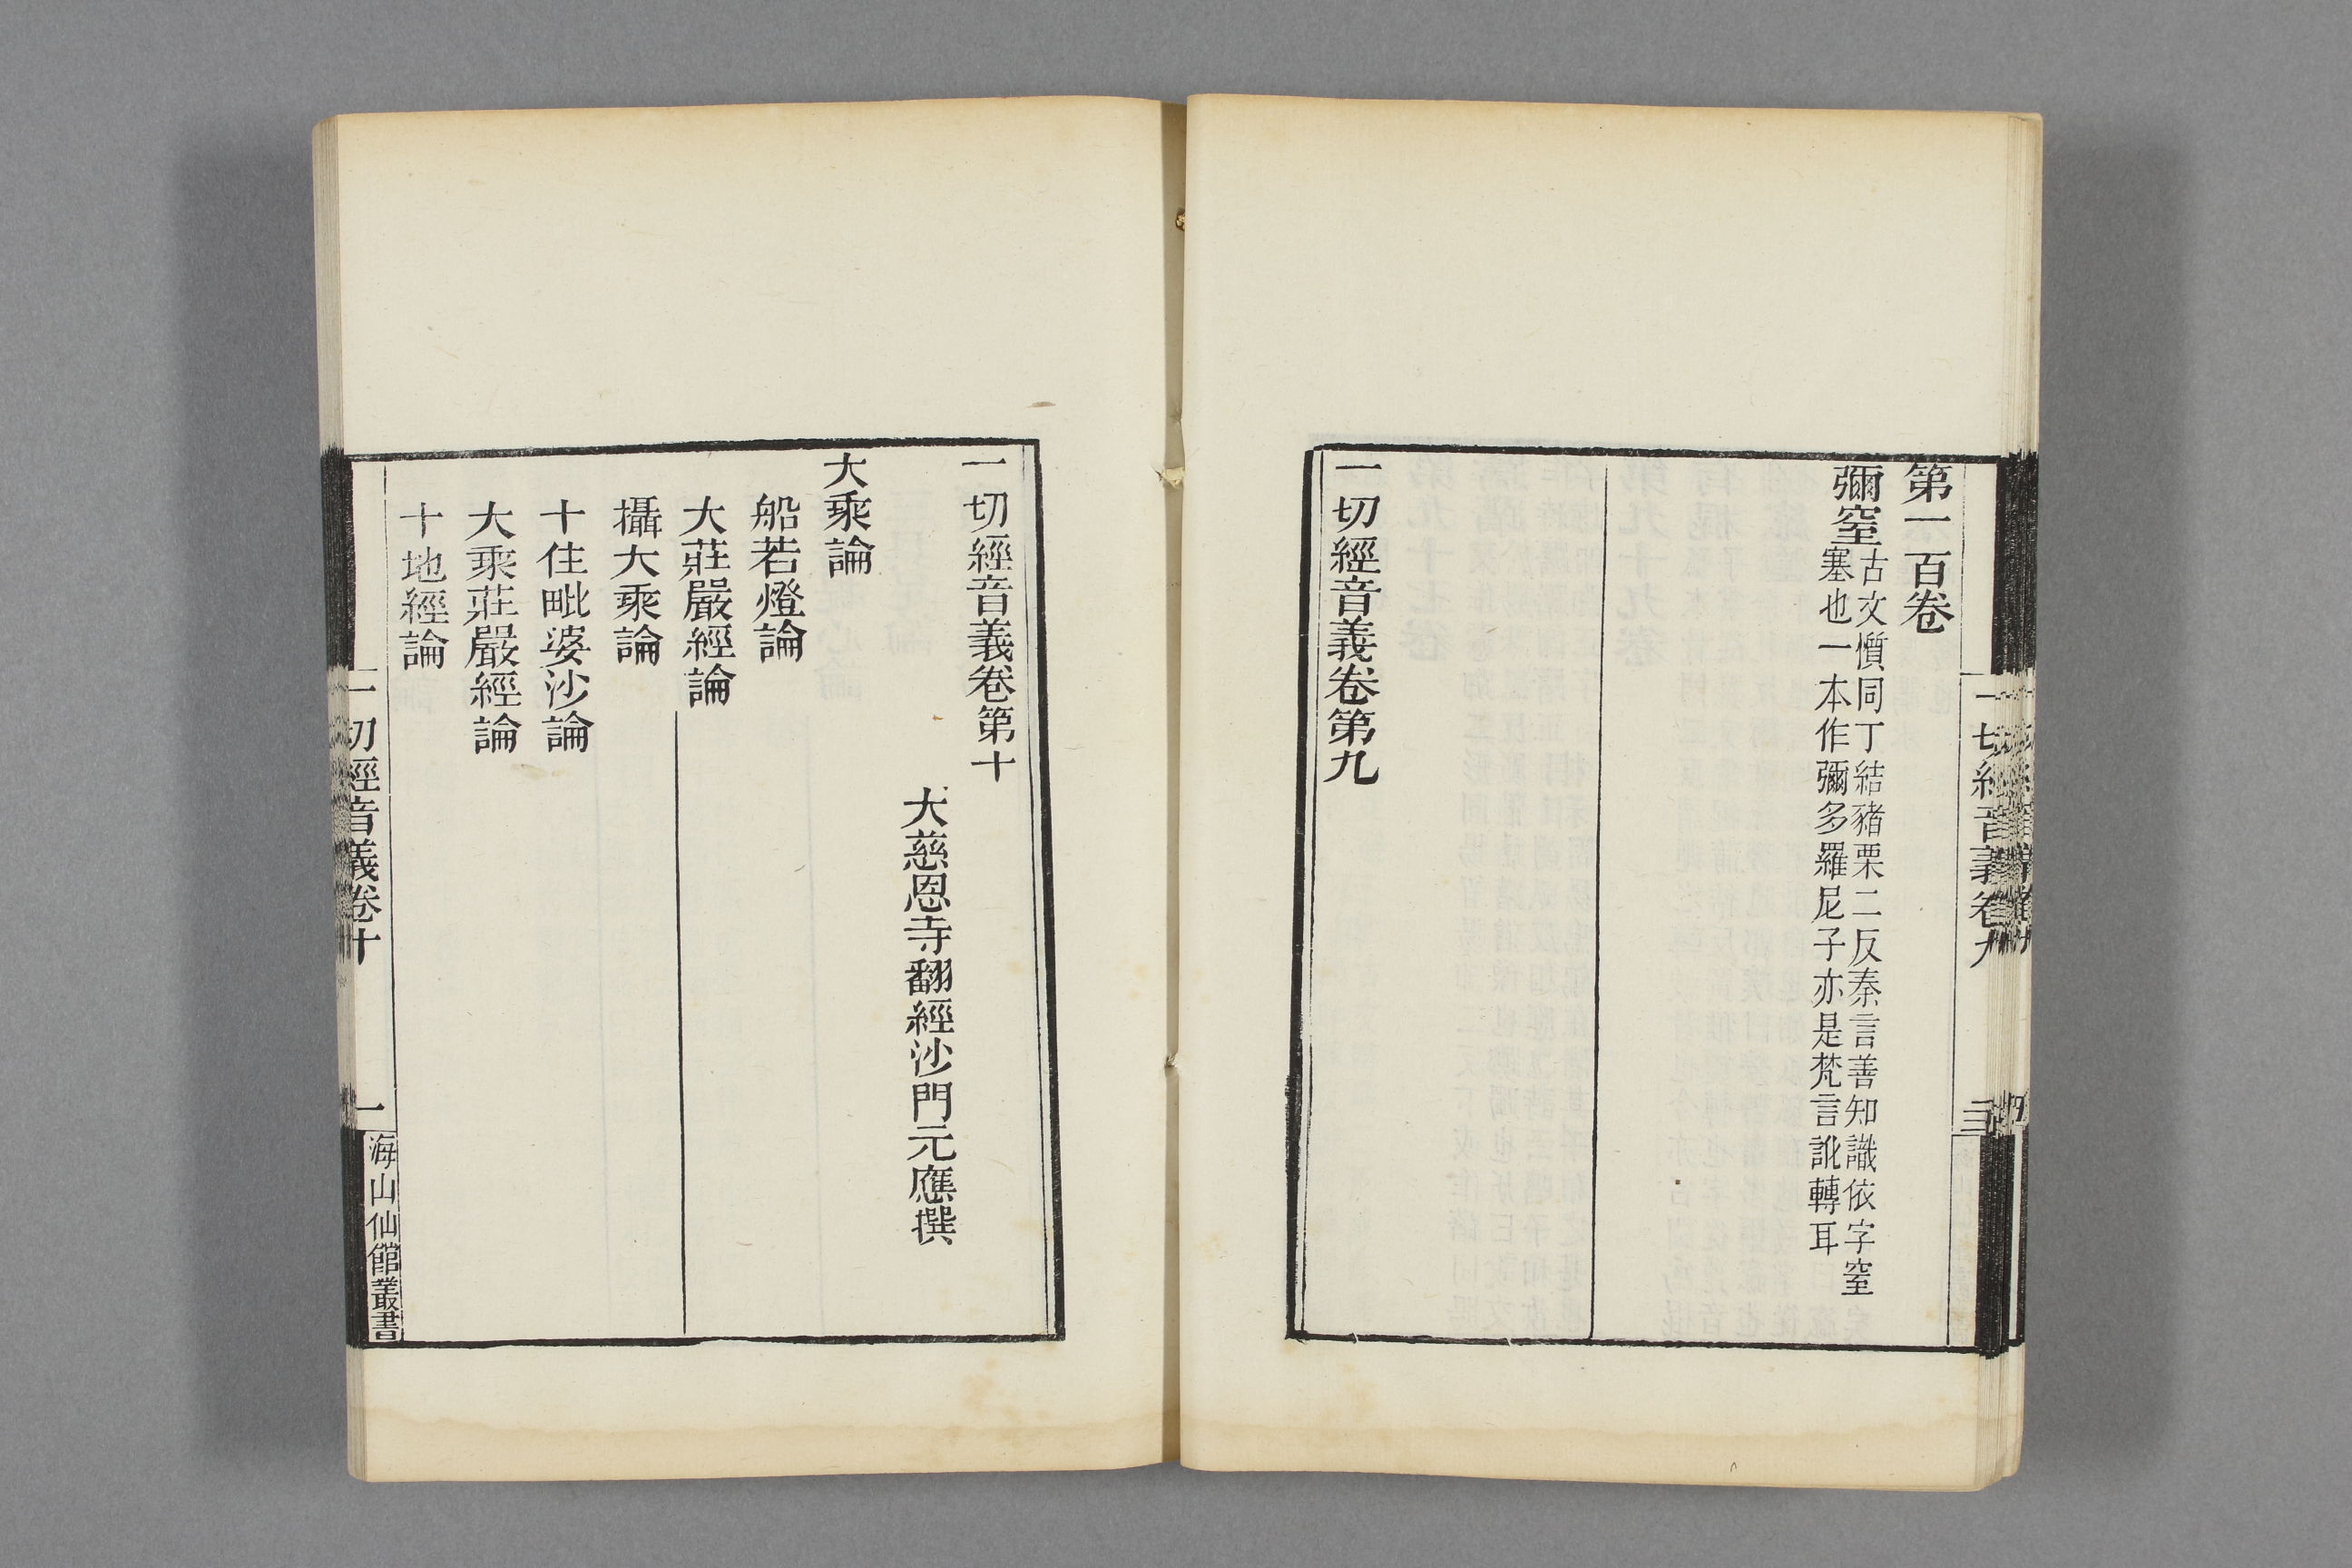 第一百卷
彌窒古文懫同丁結豬栗二反秦言善知識依字窒
塞也一本作彌多羅尼子亦是梵言訛轉耳
一切經音義卷第九
一切經音義卷第十
大慈恩寺翻經沙門元應撰
大乘論
船若燈論
大莊嚴經論
攝大乘論
十住毗婆沙論
大乘莊嚴經論
十地經論
一切經音義卷十
一
海山仙館叢書